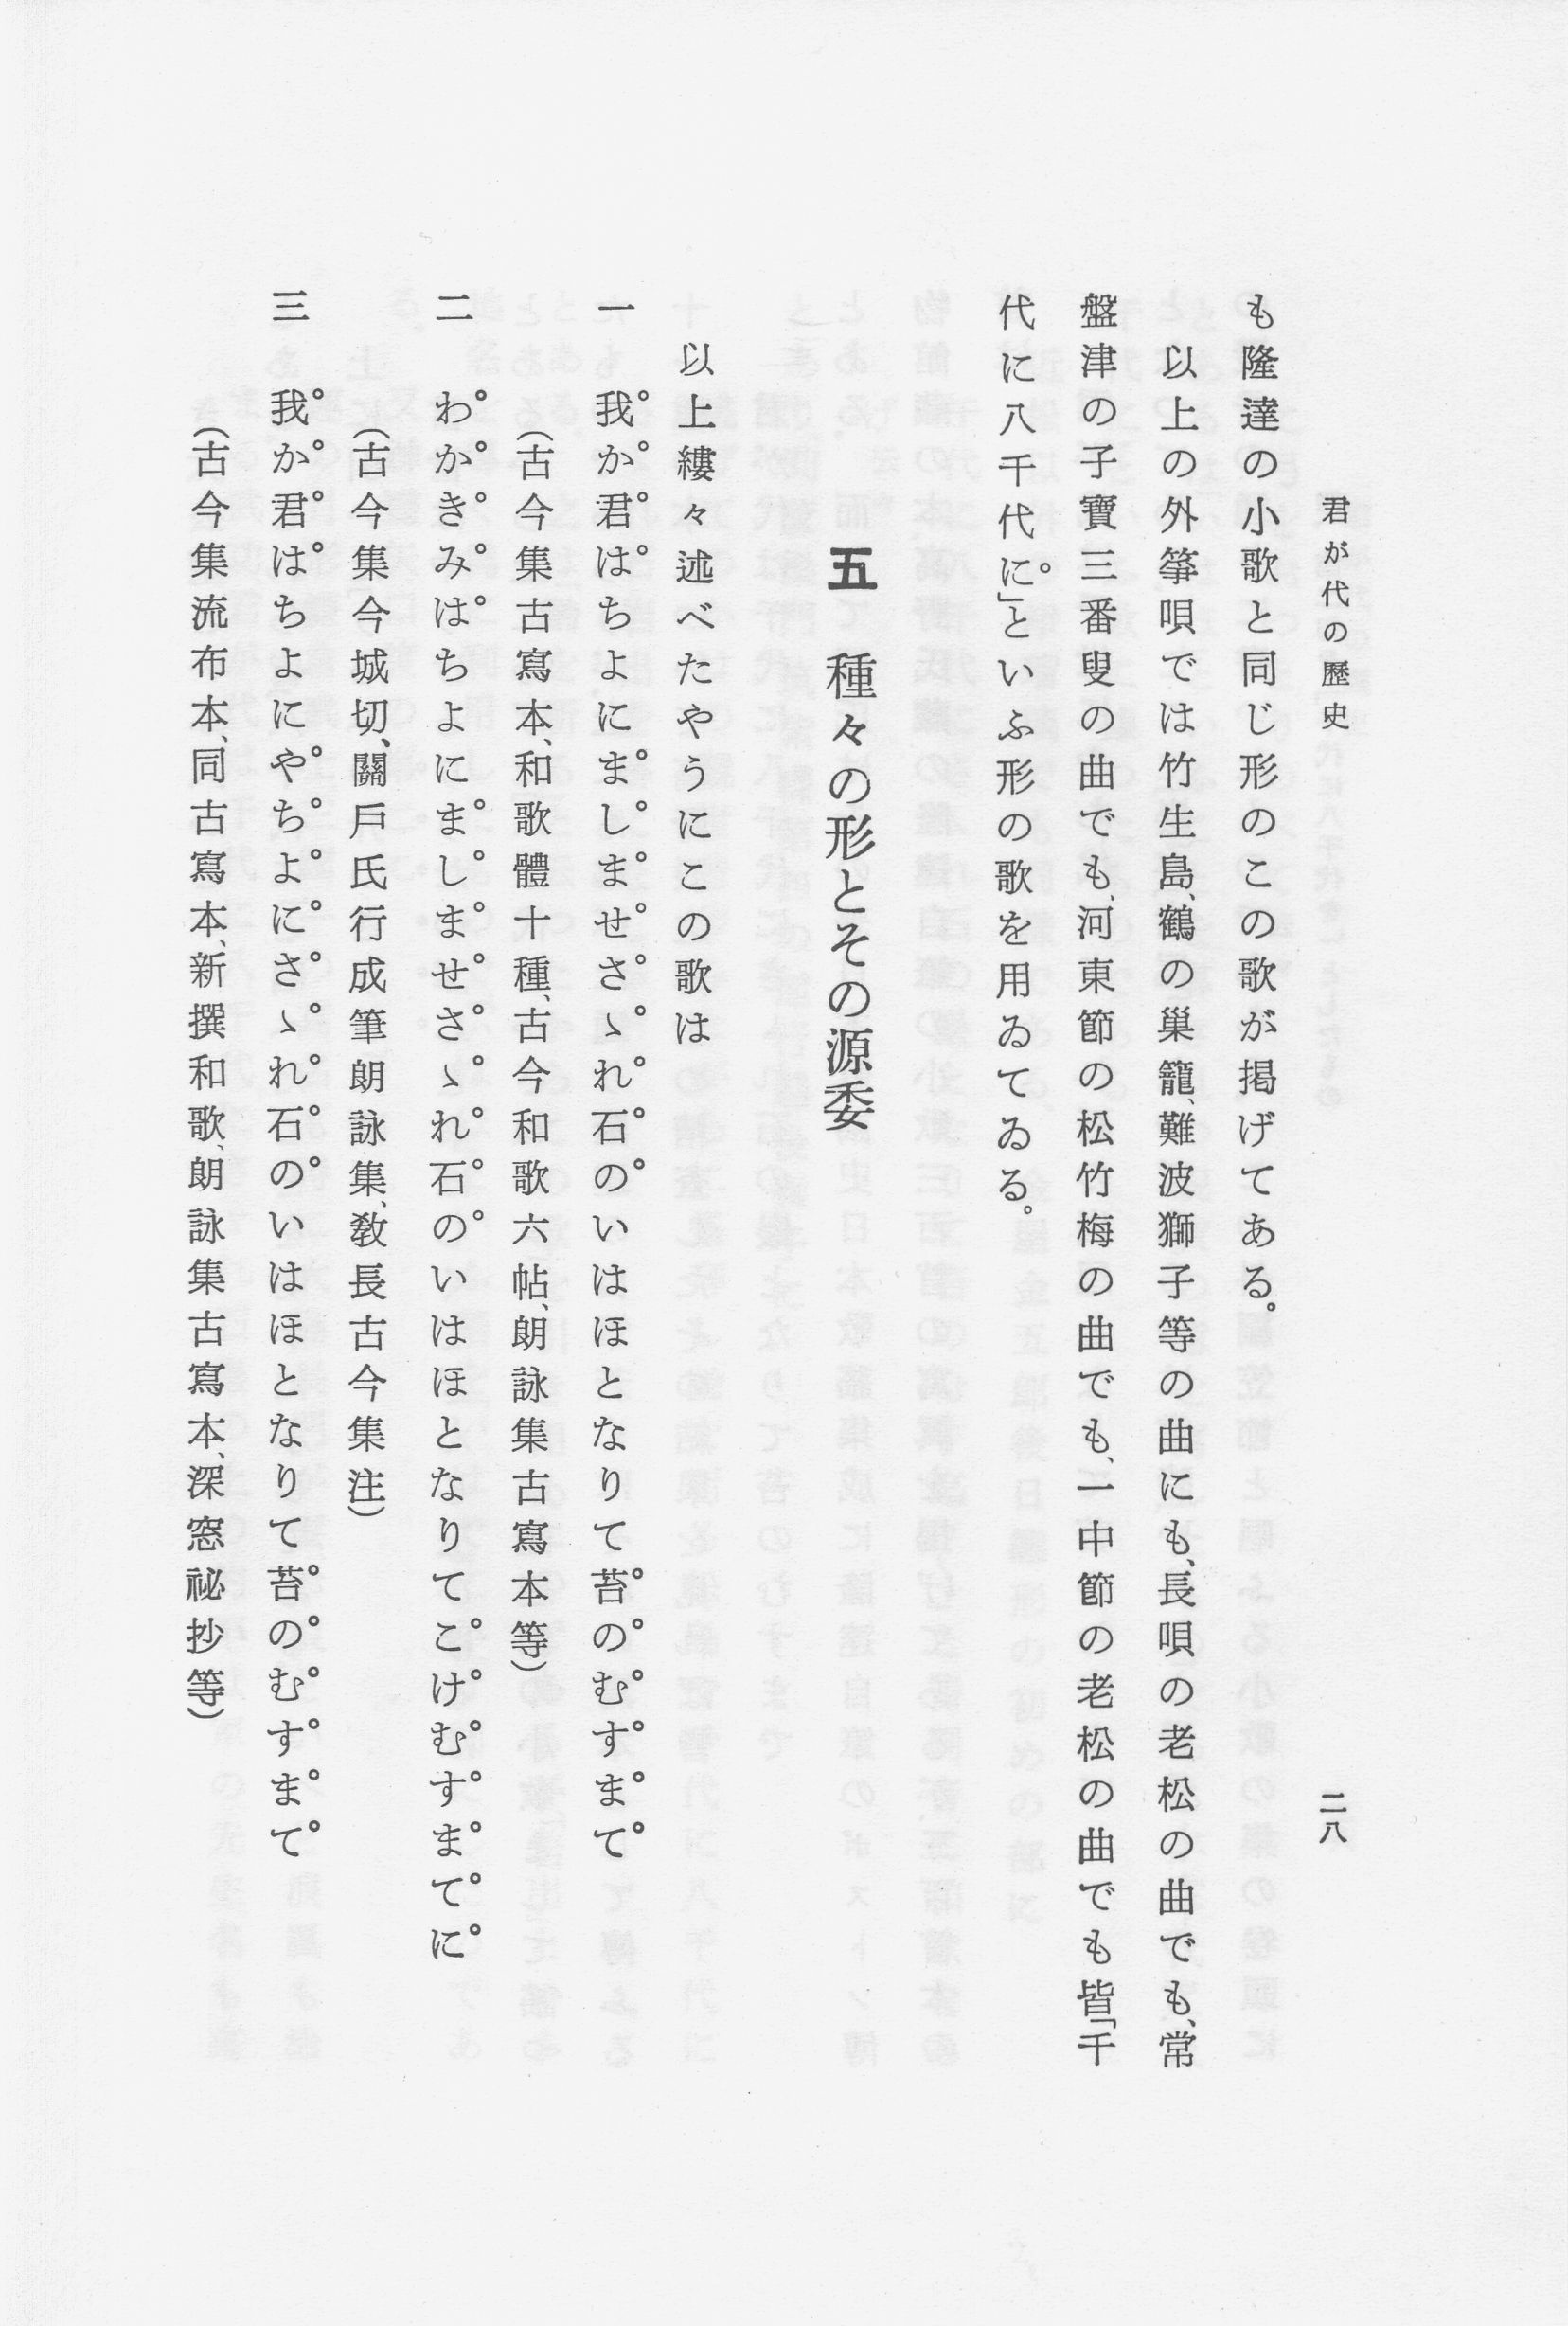 君が代の歴史
二八
も隆達の小歌と同じ形のこの歌が掲げてある。
以上の外箏唄では竹生島、鶴の巣籠、難波獅子等の曲にも、長唄の老松の曲でも、常
盤津の子寶三番叟の曲でも、河東節の松竹梅の曲でも、一中節の老松の曲でも皆「千
代に八千代に」といふ形の歌を用ゐてゐる。
五　種々の形とその源委
以上縷々述べたやうにこの歌は
一　我か君はちよにましませさゝれ石のいはほとなりて苔のむすまて
（古今集古寫本、和歌體十種、古今和歌六帖、朗詠集古寫本等）
二　わかきみはちよにましませさゝれ石のいはほとなりてこけむすまてに
（古今集今城切、關戶氏行成筆朗詠集、敎長古今集注）
三　我か君はちよにやちよにさゝれ石のいはほとなりて苔のむすまて
（古今集流布本、同古寫本、新撰和歌、朗詠集古寫本、深窓祕抄等）